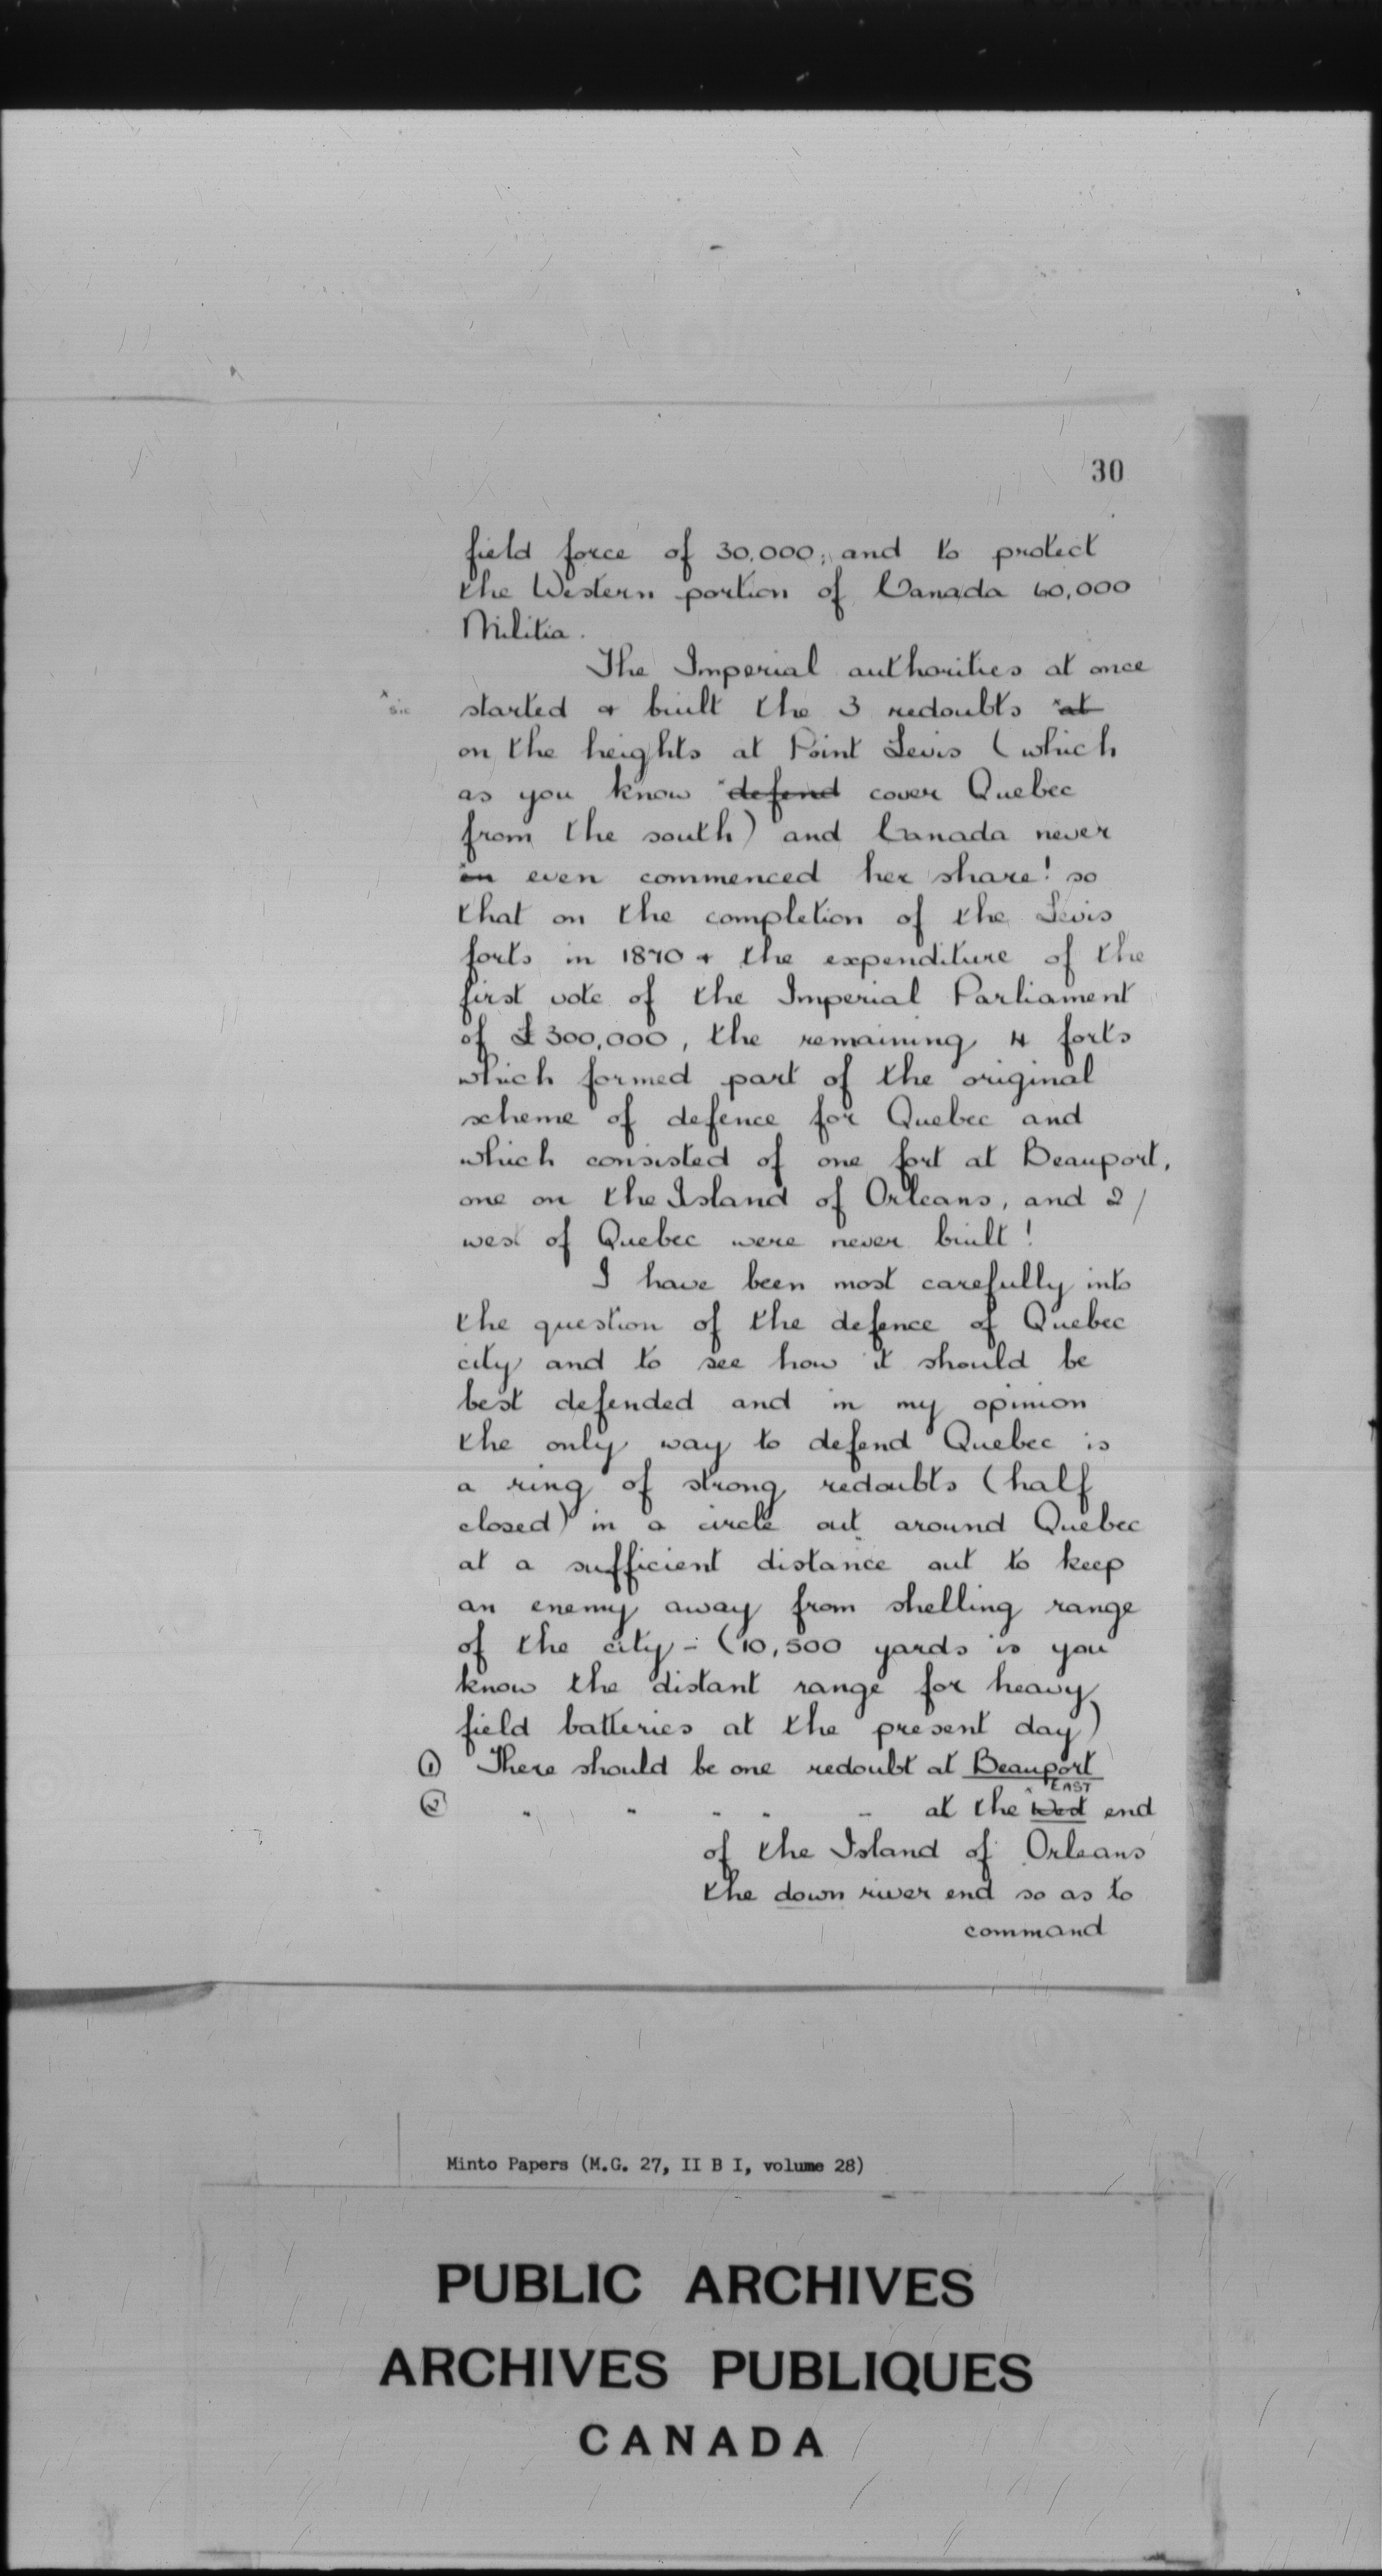 30
field force of 30,000; and to protect
the Western portion of Canada 60,000
Militia.
The Imperial authorities at once
x sic started & built the 3 redoubts x at
on the heights at Point Levis (which
as you know x defend cover Quebec
from the south) and Canada never
x en even commenced her share! so
that on the completion of the Levis
forts in 1870 & the expenditure of the
first vote of the Imperial Parliament
of £300,000, the remaining 4 forts
which formed part of the original
scheme of defence for Quebec and
which consisted of one fort at Beauport,
one on the Island of Orleans, and 2
west of Quebec were never built!
I have been most carefully into
the question of the defence of Quebec
city and to see how it should be
best defended and in my opinion
the only way to defend Quebec is
a ring of strong redoubts (half
closed) in a circle out around Quebec
at a sufficient distance out to keep
an enemy away from shelling range
of the city - (10,500 yards is you
know the distant range for heavy
field batteries at the present day)
① There should be one redoubt at Beauport
EAST
② " " " " " at the x West end
of the Island of Orleans
the down river end so as to
command
Minto Papers (M.G. 27, II B I, volume 28)
PUBLIC ARCHIVES
ARCHIVES PUBLIQUES
CANADA